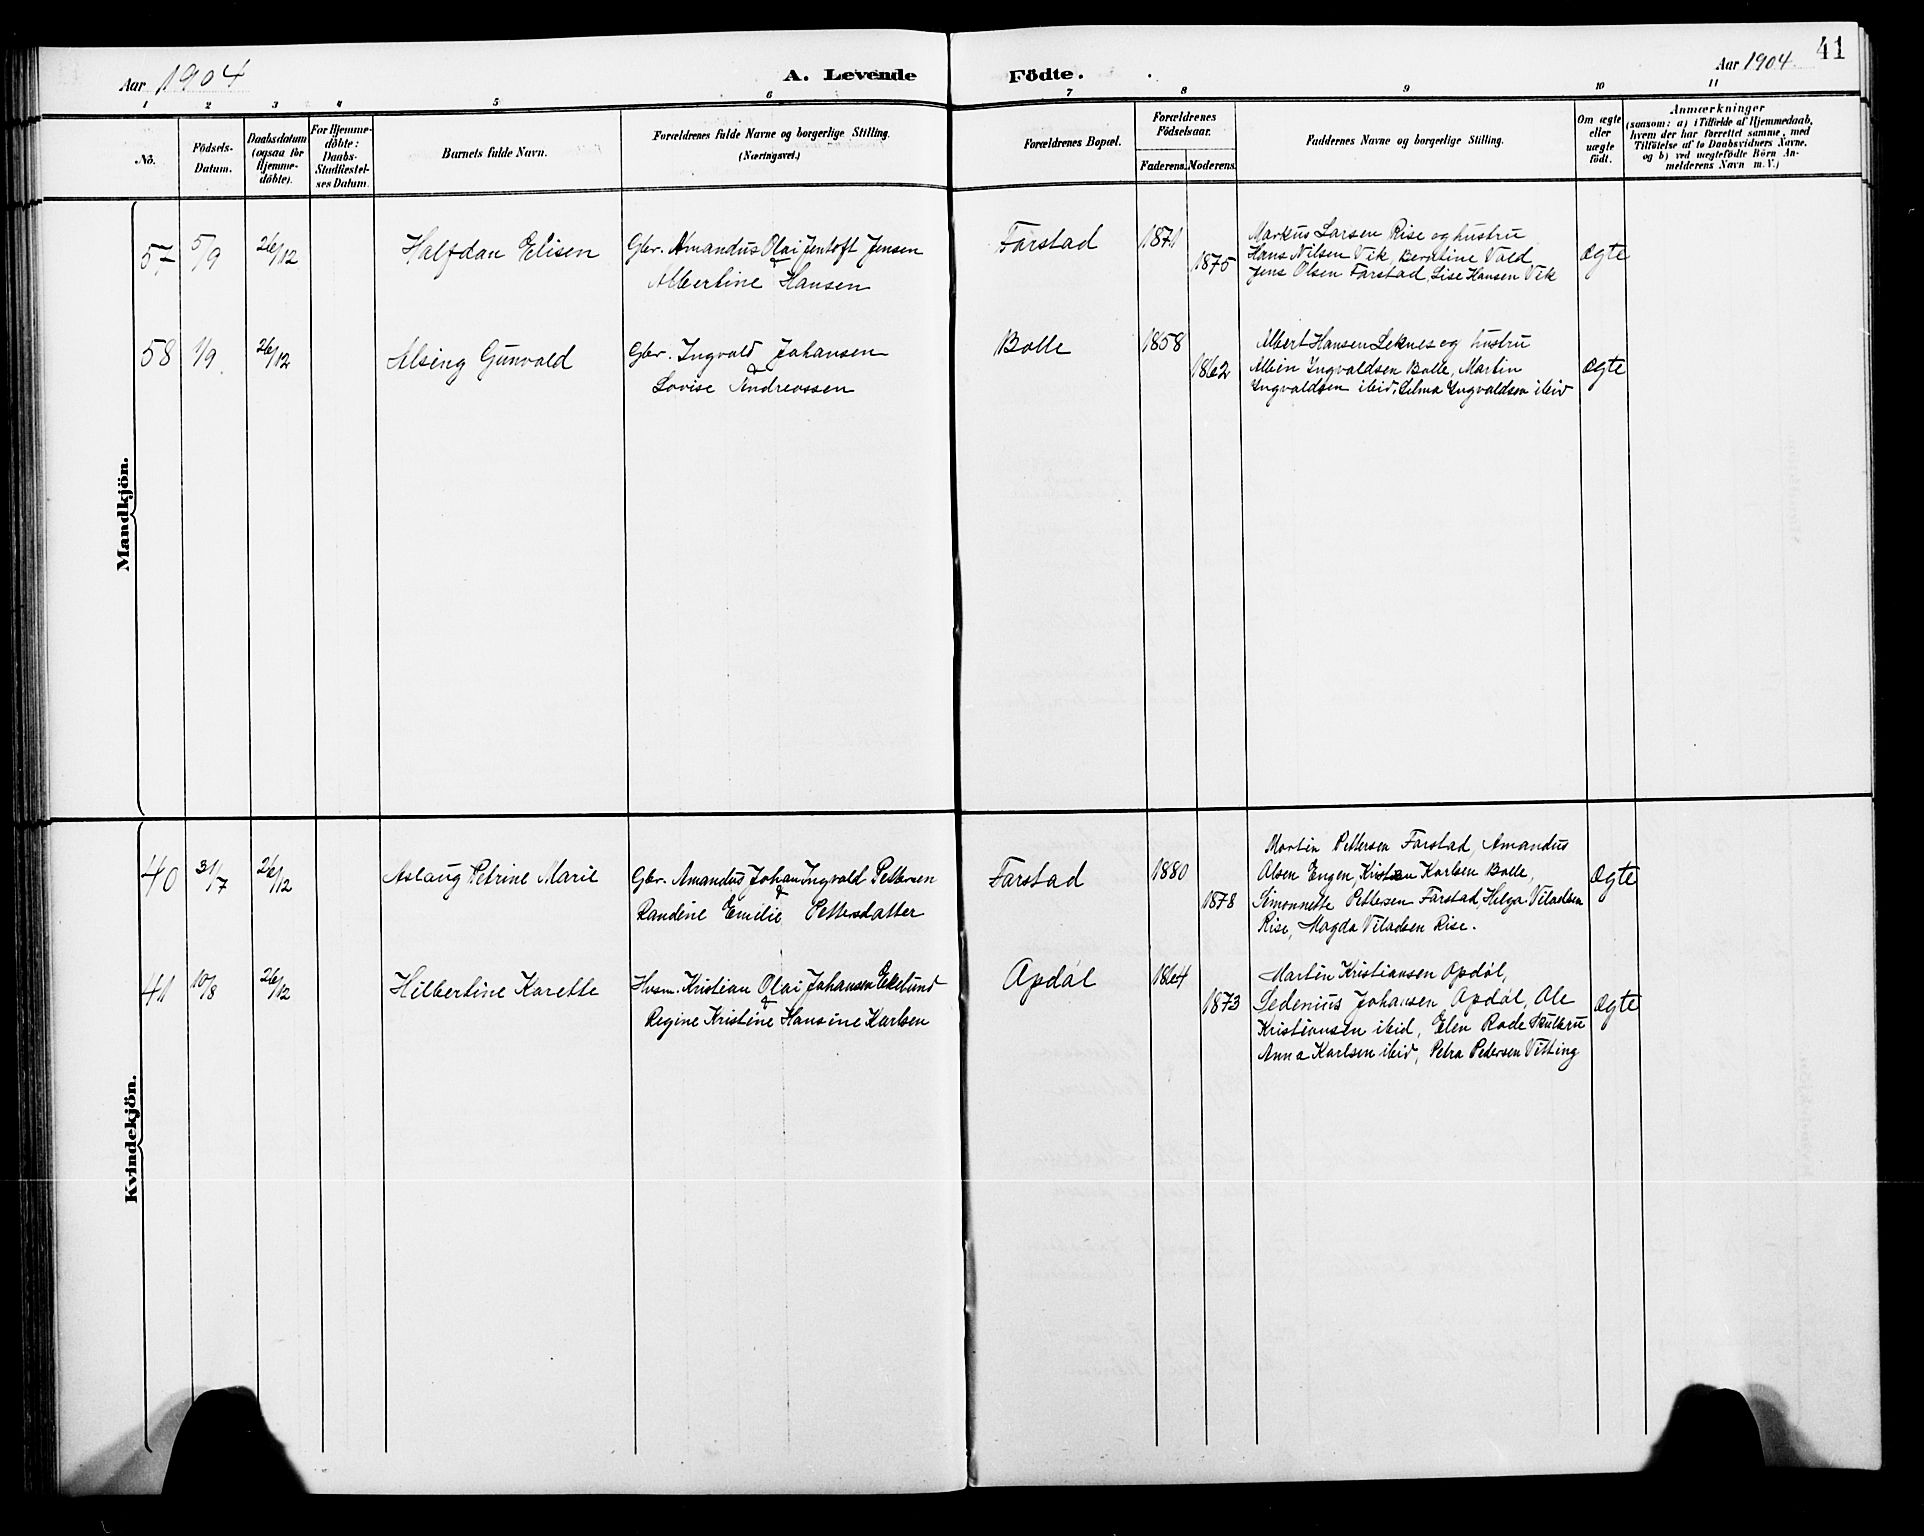 41
Aar 1904
A. Levende Födte.
Aar 1904
1 2 3 4 5 6 7 8 9 10 11
No.
Födsels-
Datum.
Daabsdatum
(ogsaa for
Hjemme-
döbte).
For Hjemme-
döbte:
Daabs-
Stadfæstel-
ses Datum.
Barnets fulde Navn.
Forældrenes fulde Navne og borgerlige Stilling.
(Næringsvei.)
Forældrenes Bopæl.
Forældrenes
Födselsaar.
Faderens. Moderens.
Faddernes Navne og borgerlige Stilling.
Om ægte
eller
uægte
födt.
Anmærkninger
(saasom: a) i Tilfælde af Hjemmedaab,
hvem der har forrettet samme, med
Tilföielse af to Daabsvidners Navne,
og b) ved uægtefödte Börn An-
melderens Navn m. V.)
Mandkjön.
57 5/9 26/12 Halfdan Elisen
Gbr. Amandus Olai Jentoft Jensen
&
Albertine Hansen
Farstad 1871 1875
Markus Larsen Rise og hustru
Hans Nilsen Vik, Berntine Vold
Jens Olsen Farstad, Lise Hansen Vik
ægte
58 1/9. 26/12 Alsing Gunvald
Gbr. Ingvald Johansen
&
Lovise Andreassen
Bolle 1858 1862
Albert Hansen Leknes og hustru
Albin Ingvaldsen Bolle, Martin
Ingvaldsen ibid, Selma Ingvaldsen ibid
ægte
Kvindekjön.
40 31/7 26/12 Aslaug Petrine Marie
Gbr. Amandus Johan Ingvald Pettersen
&
Randine Emilie Pettersdatter
Farstad 1880 1878
Martin Pettersen Farstad, Amandus
Olsen Engen, Kristian Karlsen Bolle,
Simonnette Pettersen Farstad, Helga Viladsen
Rise, Magda Viladsen Rise.
ægte
41 10/8 26/12 Hilbertine Karette
Husm. Kristian Olai Johansen Eklund
&
Regine Kristine Hansine Karlsen
Apdøl 1864 1873
Martin Kristiansen Apdøl,
Sedenius Johansen Apdøl, Ole
Kristiansen ibid, Elen Rode
Anna Karlsen ibid, Petra Pedersen Vitting
ægte